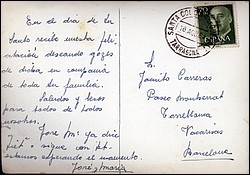 En el dia de la
Santo recibe nuestra feli-
citación deseando goces
de dicha en compañia
de toda su familia.
Saludos y besos
para todos de todos
nosotros.
José Mª ya dice
"Titó" sigue con
estamos esperando el momento.
José y María
SANTA COLOMA
TARRAGONA
A
Jaimito Carreras
Paseo Montserrat
Torreblanca
Vacarisas
Barcelona